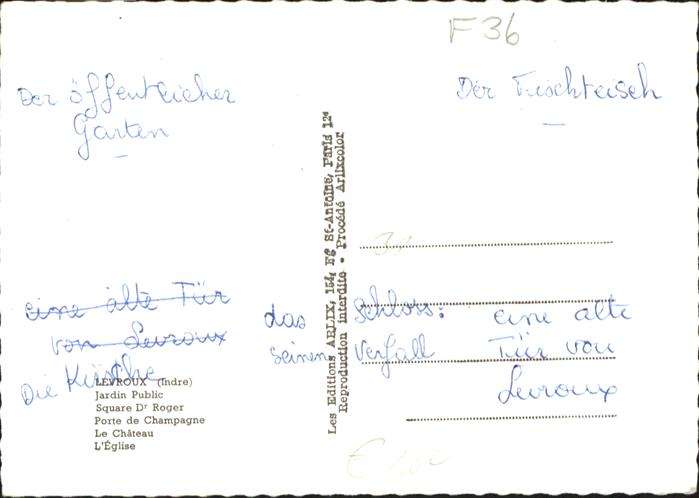 F36
Der öffentlicher
Garten
Der Fischteich
Les Editions ARLIX, 154, Fg St-Antoine, Paris 12e
Reproduction interdite • Procédé Arlixcolor
eine alte Tür
von Levroux
das Schloss:
seinen Verfall
eine alte
Tür von
Levroux
Die Kirche
LEVROUX (Indre)
Jardin Public
Square Dr Roger
Porte de Champagne
Le Château
L'Église